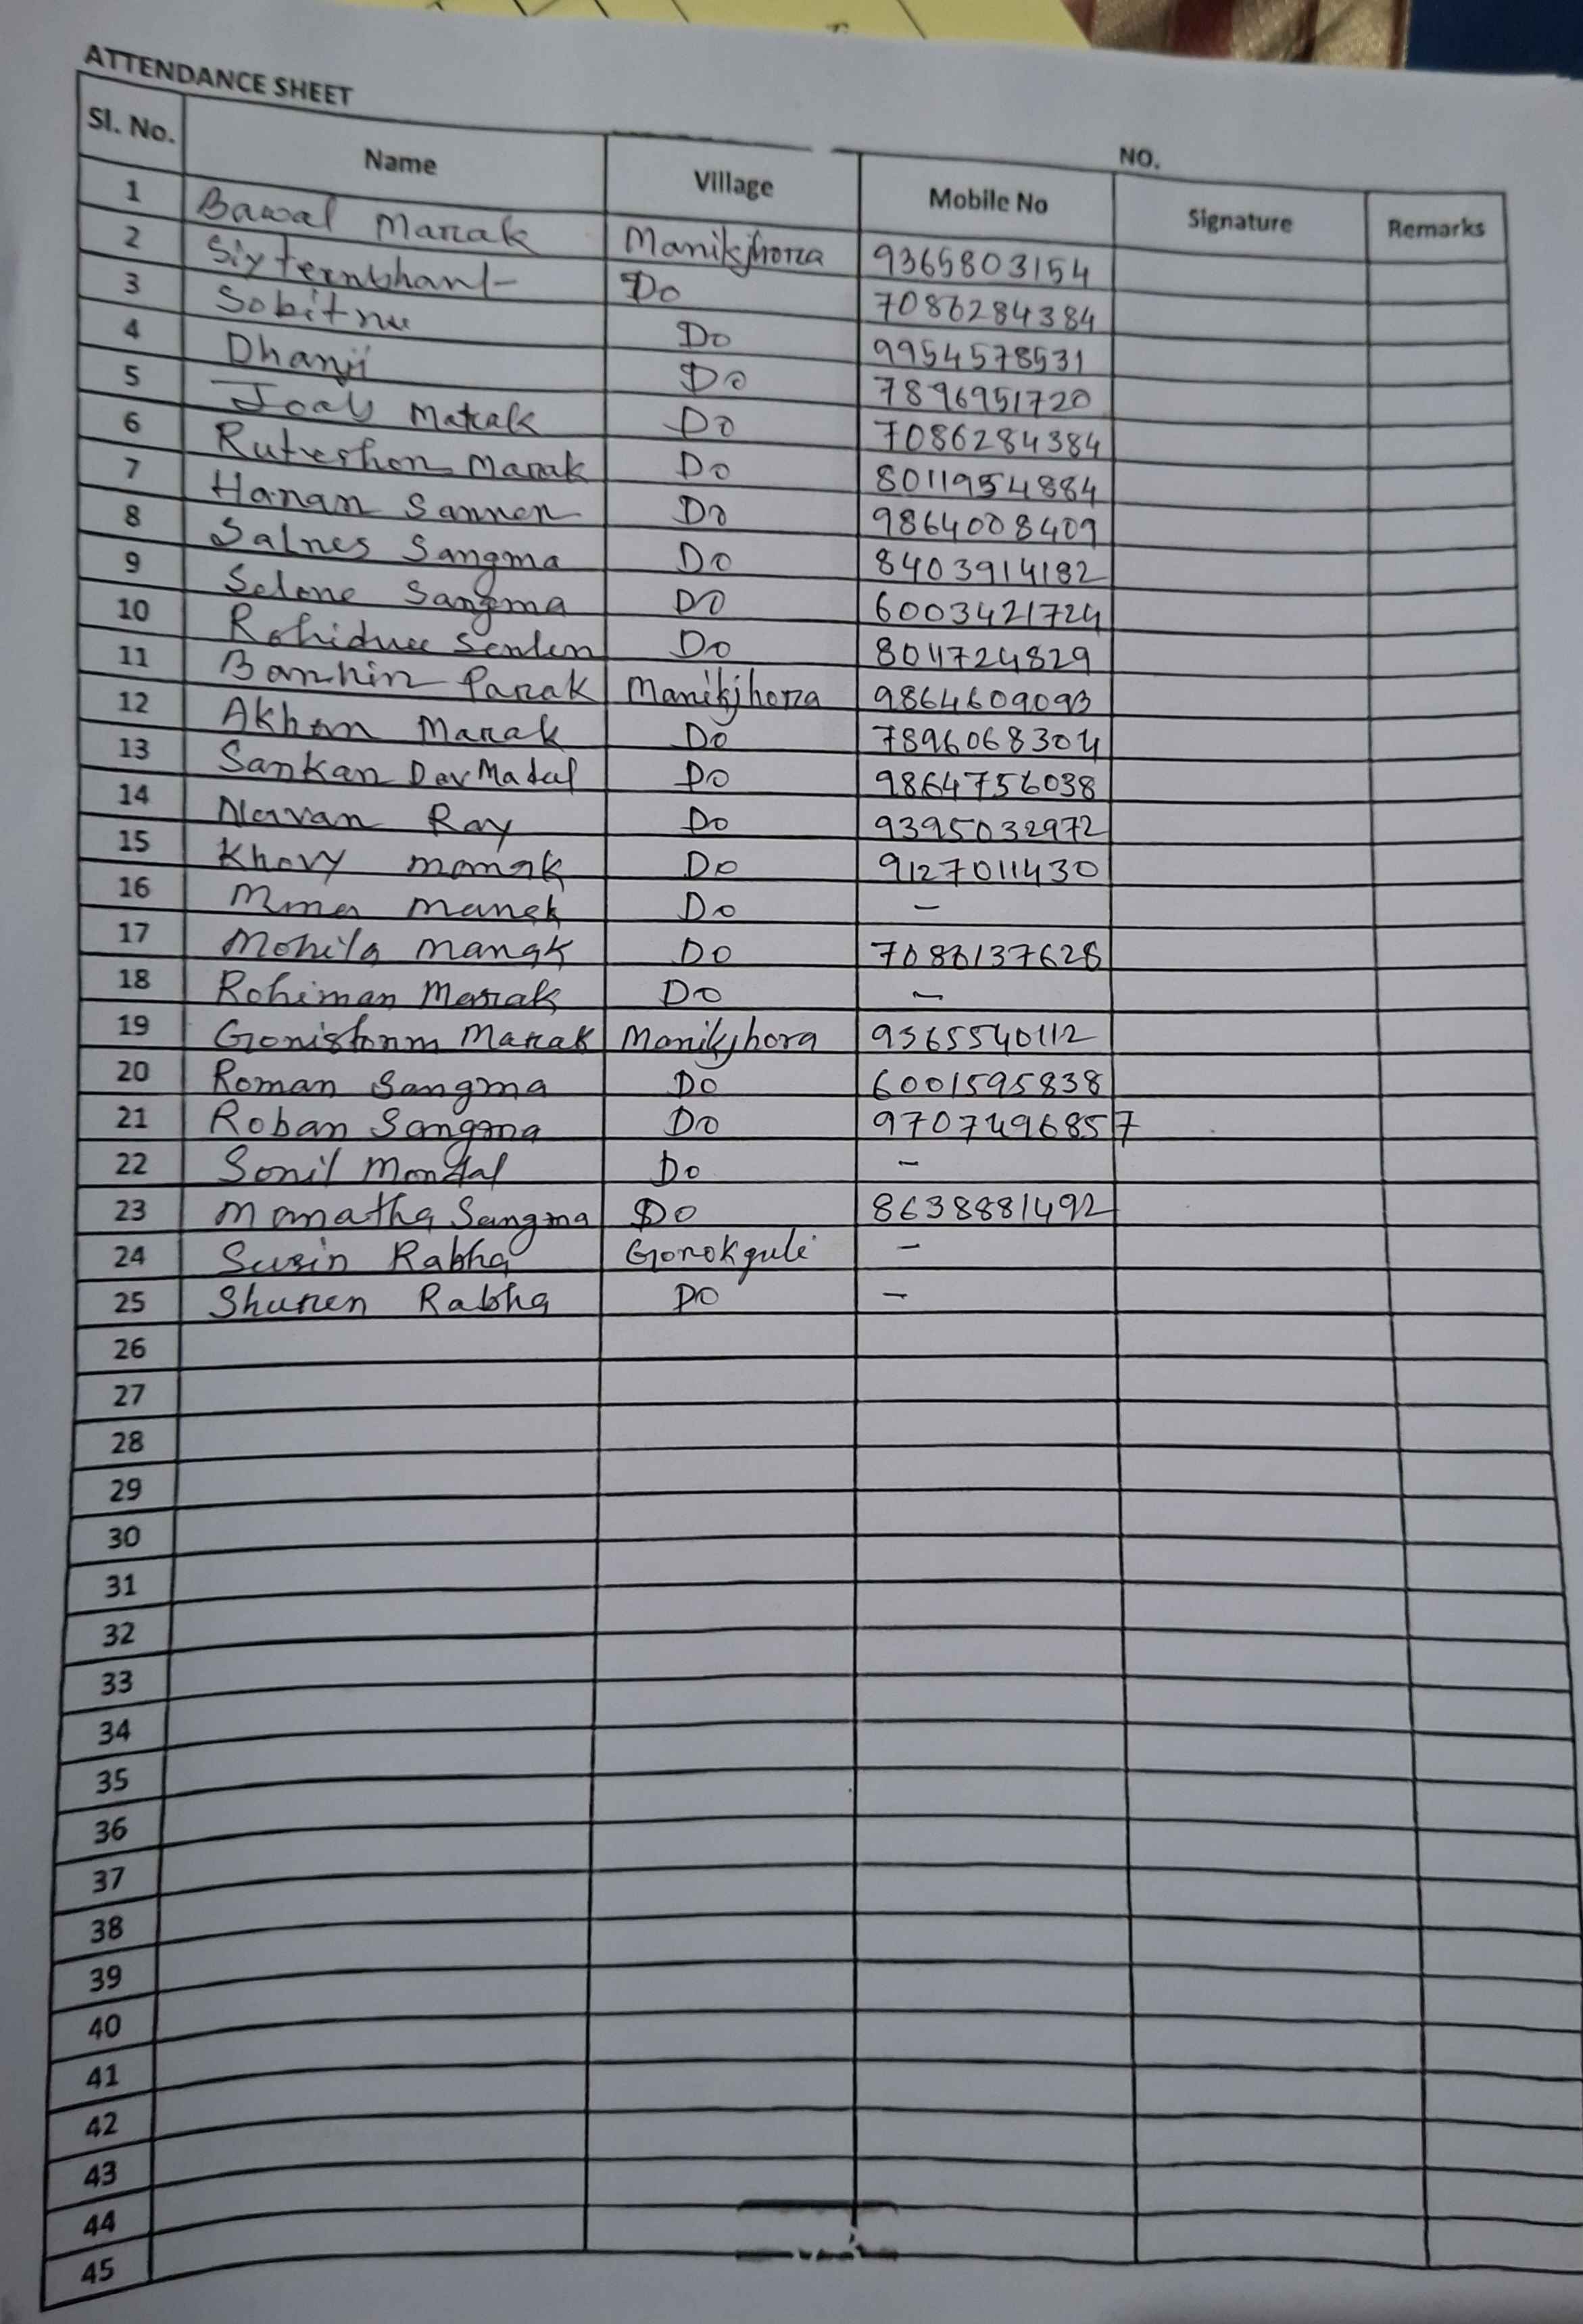 ATTENDANCE SHEET
NO.
Sl. No. Name Village Mobile No Signature Remarks
1 Bawal Marak Manikjhora 9365803154
2 Do 7086284384
3 Do 9954578531
4 Dhanji Do 7896951720
5 Marak Do 7086284384
6 Ruteshon Marak Do 8011954884
7 Hanan Do 9864008409
8 Salnes Sangma Do 8403914182
9 Selone Sangma Do 6003421724
10 Do 8011724829
11 Manikjhora 9864609093
12 Akhon Marak Do 7896068304
13 Sankan Do 9864756038
14 Ray Do 9395032972
15 Do 9127011430
16 Do -
17 Mohila Do 7086137628
18 Rohiman Marak Do -
19 Marak Manikjhora 9365540112
20 Roman Sangma Do 6001595838
21 Roban Sangma Do 9707496857
22 Sonil Mondal Do -
23 Manatha Sangma Do 8638881492
24 Susin Rabha -
25 Shuren Rabha Do -
26
27
28
29
30
31
32
33
34
35
36
37
38
39
40
41
42
43
44
45